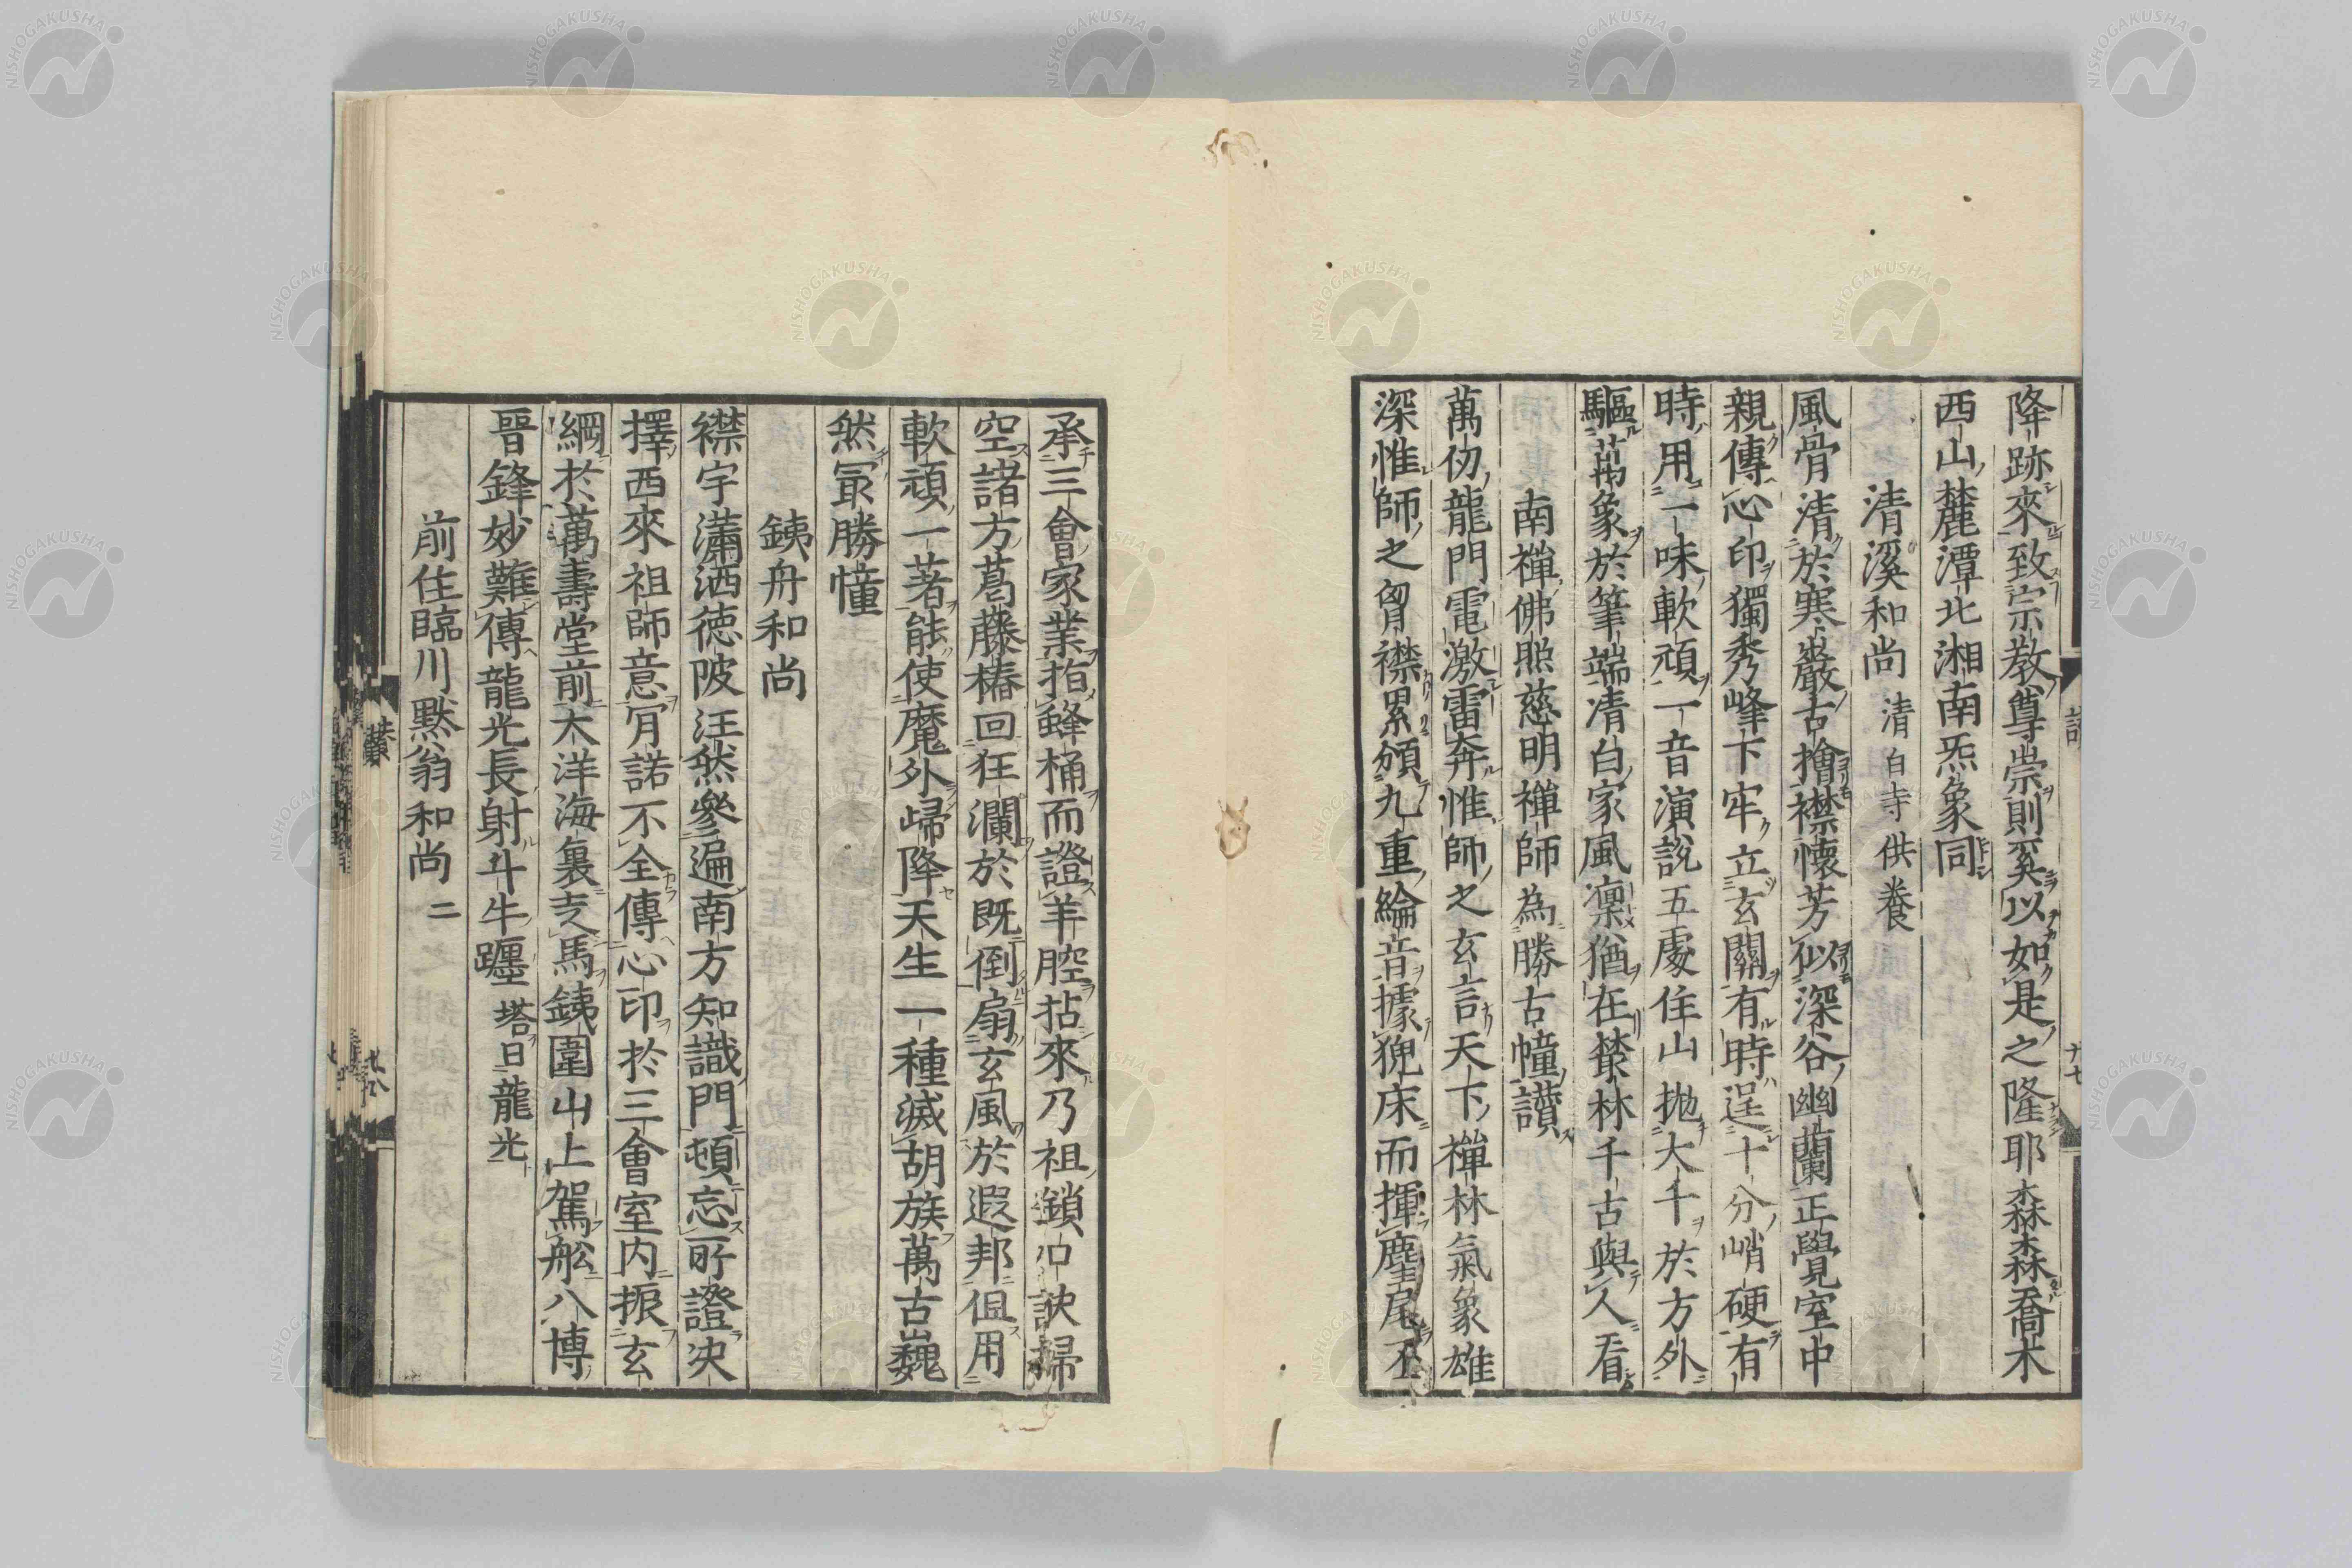 降跡來致宗教尊崇則奚以如是之隆耶森森喬木
西山麓潭北湘南炁象同
清溪和尚 清白寺供養
風骨清於寒巖古檜襟懷芳似深谷幽蘭正覺室中
親傳心印獨秀峰下牢立玄關有時逞十分峭硬有
時用一味軟頑一音演說五處住山拋大千於方外
驅萬象於筆端清白家風凜猶在叢林千古與人看
南禪佛照慈明禪師為勝古幢讚
萬仞龍門電激雷奔惟師之玄言天下禪林氣象雄
深惟師之胷襟累頒九重綸音據猊床而揮麈尾丕
承三會家業指蜂桶而證羊腔拈來乃祖鎖口訣掃
空諸方葛藤樁回狂瀾於既倒扇玄風於遐邦但用
軟頑一著能使魔外歸降天生一種滅胡族萬古巍
然冣勝幢
銕舟和尚
襟宇瀟洒徳陂汪然參遍南方知識門頓忘所證決
擇西來祖師意肎諾不全傳心印於三會室內振玄
綱於萬壽堂前大洋海裏走馬銕圍山上駕舩八博
晉鋒妙難傳龍光長射斗牛躔 塔曰龍光
前住臨川黙翁和尚 二
NISHOGAKUSHA